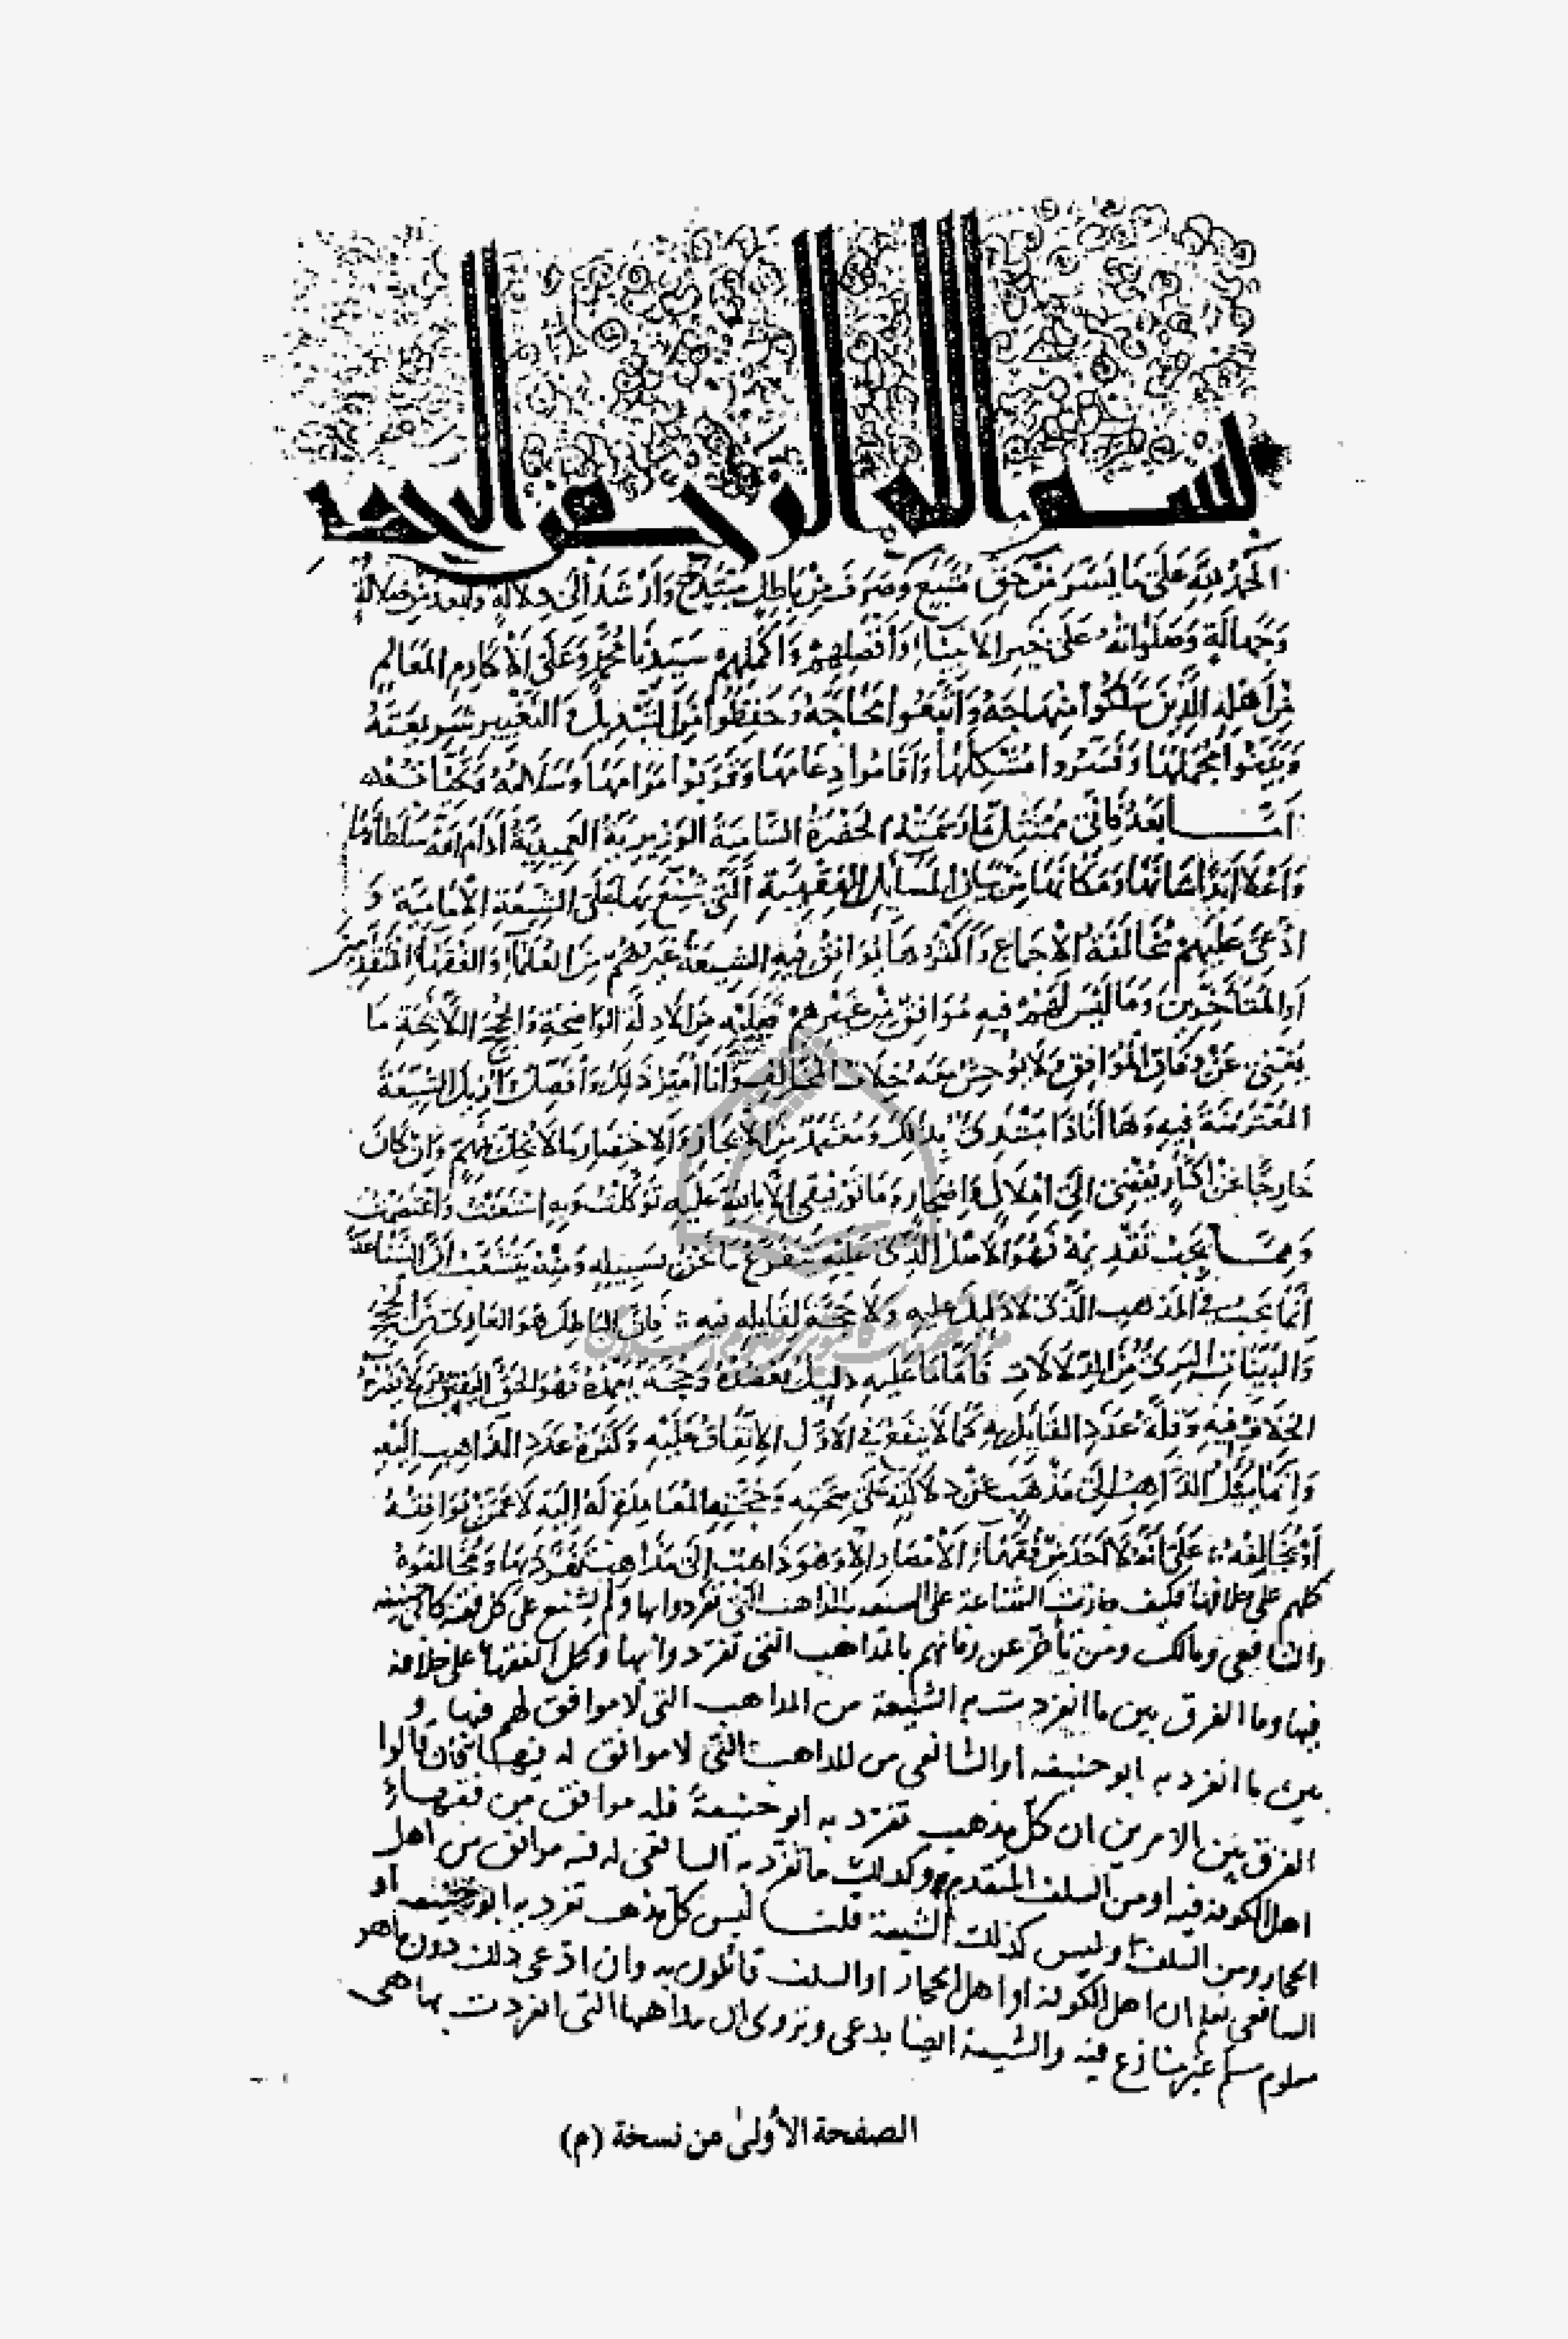 بسم الله الرحمن الرحيم
الحمد لله على ما يسر من حق متبع وصرف من باطل مبتدع وارشد الى دلالة وابعد من ضلالة
وجهالة وصلواته على خير الانبياء وافضلهم واكملهم سيدنا محمد وعلى الاكارم المعالم
من اهله الذين سلكوا منهاجه واتبعوا محاجه وحفظوا من التبديل والتغيير شريعته
وبينوا مجملها وفسروا مشكلها واقاموا دعامها وقوبوا قوامها وسلامه وتحياته
اما بعد فانى ممتثل ما رسمته الحضرة السامية الوزيرية العميدية ادام الله سلطانها
واعلا ابدا شانها ومكانها من بيان المسائل الفقهية التى شنع بها على الشيعة الامامية و
ادعى عليهم مخالفة الاجماع واكثرها يوافق فيه الشيعة غيرهم من العلماء والفقهاء المتقدمين
او المتاخرين وما ليس لهم فيه موافق من غيرهم فعليه من الادلة الواضحة والحجج اللائحة ما
يغنى عن وفاق الموافق ولا يوحش معه خلاف المخالف وانا اميز ذلك وافصله وازيل الشبهة
المعترضة فيه وها انا ذا مبتدئ بذلك ومعتمد من الايجاز والاختصار ما لا يخل بفهم وان كان
خارجا عن اكثار يفضى الى املال واضجار وما توفيقى الا بالله عليه توكلت وبه استعنت واعتصمت
ومما يجب تقديمه فهو الاصل الذى عليه يتفرع ما نحن بسبيله ومنه يتشعب ان الشناعة
انما يجب في المذهب الذى لا دليل عليه ولا حجة لقايله فيه فان الباطل هو العارى من الحجج
والبينات البرئ من الدلالات فاما ما عليه دليل يعضده وحجة تعمده فهو الحق اليقين ولا يضره
الخلاف فيه وقلة عدد القايل به كما لا ينفع في الاول الاتفاق عليه وكثرة عدد الذاهب اليه
وانما يسئل الذاهب الى مذهب عن دلالته على صحته وحجته المعاملة له اليه لا عمن يوافقه
او يخالفه على انه لا احد من فقهاء الامصار الا وهو ذاهب الى مذاهب تفرد بها ومخالفوه
كلهم على خلافها فكيف جازت الشناعة على الشيعة بالمذاهب التى تفردوا بها ولم يشنع على كل فقيه كابى حنيفه
والشافعى ومالك ومن تأخر عن زمانهم بالمذاهب التى تفردوا بها وكل الفقهاء على خلافه
فيها وما الفرق بين ما انفردت به الشيعة من المذاهب التى لا موافق لهم فيها و
بين ما انفرد به ابو حنيفه او الشافعى من المذاهب التى لا موافق له فيها فان قالوا
الفرق بين الامرين ان كل مذهب تفرد به ابو حنيفة فله موافق من فقهاء
اهل الكوفة فيه او من السلف المتقدم وكذلك ما تفرد به الشافعى له فيه موافق من اهل
الحجاز ومن السلف وليس كذلك الشيعة قلنا ليس كل مذهب تفرد به ابو حنيفه او
الشافعى يعلم ان اهل الكوفة او اهل الحجاز او السلف قائلون به وان ادعى ذلك دون ما هو
معلوم مسلم غير منازع فيه والشيعة ايضا يدعى ويروى ان مذاهبها التى انفردت بها هى
الصفحة الأولىٰ من نسخة (م)